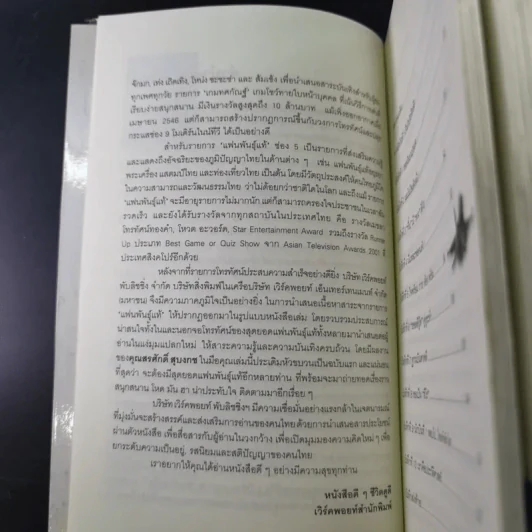 จักแก, เท่ง เถิดเทิง, โหน่ง ชะชะช่า และ ส้มเช้ง เพื่อนำเสนอสาระบันเทิงสำหรับผู้ชม
ทุกเพศทุกวัย รายการ "เกมทศกัณฐ์" เกมโชว์ทายใบหน้าบุคคล ที่เน้นวิธีการเล่น
เรียบง่ายสนุกสนาน มีเงินรางวัลสูงสุดถึง 10 ล้านบาท แม้เพิ่งออกอากาศเมื่อ
เมษายน 2546 แต่ก็สามารถสร้างปรากฏการณ์ขึ้นกับวงการโทรทัศน์
กระแสช่อง 9 โมเดิร์นไนน์ทีวี ได้เป็นอย่างดี
สำหรับรายการ "แฟนพันธุ์แท้" ช่อง 5 เป็นรายการที่ส่งเสริมความรู้
และแสดงถึงอัจฉริยะของภูมิปัญญาไทยในด้านต่าง ๆ เช่น แฟนพันธุ์แท้
พระเครื่อง แสตมป์ไทย และท่องเที่ยวไทย เป็นต้น โดยมีวัตถุประสงค์ให้คนไทยภูมิใจ
ในความสามารถและวัฒนธรรมไทย ว่าไม่ด้อยกว่าชาติใดในโลก และถึงแม้ รายการ
"แฟนพันธุ์แท้" จะมีอายุรายการไม่มากนัก แต่ก็สามารถครองใจประชาชนในเวลาอัน
รวดเร็ว และยังได้รับรางวัลจากทุกสถาบันในประเทศไทย คือ รางวัลเมขลา
โทรทัศน์ทองคำ, โหวต อะวอร์ด, Star Entertainment Award รวมถึงรางวัล Runner
Up ประเภท Best Game or Quiz Show จาก Asian Television Awards 2001 ที่
ประเทศสิงคโปร์อีกด้วย
หลังจากที่รายการโทรทัศน์ประสบความสำเร็จอย่างดียิ่ง บริษัท เวิร์คพอยท์
พับลิชชิ่ง จำกัด บริษัทสิ่งพิมพ์ในเครือบริษัท เวิร์คพอยท์ เอ็นเทอร์เทนเมนท์ จำกัด
(มหาชน) จึงมีความภาคภูมิใจเป็นอย่างยิ่ง ในการนำเสนอเนื้อหาสาระจากรายการ
"แฟนพันธุ์แท้" ให้ปรากฏออกมาในรูปแบบหนังสือเล่ม โดยรวบรวมประสบการณ์
น่าสนใจทั้งในและนอกจอโทรทัศน์ของสุดยอดแฟนพันธุ์แท้ทั้งหลายมานำเสนอต่อผู้
อ่านในแง่มุมแปลกใหม่ ให้สาระความรู้และความบันเทิงครบถ้วน โดยมีผลงาน
ของคุณสรศักดิ์ สุบงกช ในมือคุณเล่มนี้ประเดิมหัวขบวนเป็นฉบับแรก และแน่นอน
ที่สุดว่า จะต้องมีสุดยอดแฟนพันธุ์แท้อีกหลายท่าน ที่พร้อมจะมาถ่ายทอดเรื่องราว
สนุกสนาน โหด มัน ฮา น่าประทับใจ ติดตามมาอีกเรื่อย ๆ
บริษัท เวิร์คพอยท์ พับลิชชิ่งฯ มีความเชื่อมั่นอย่างแรงกล้าในเจตนารมณ์
ที่มุ่งมั่นจะสร้างสรรค์และส่งเสริมการอ่านของคนไทย ด้วยการนำเสนอสาระประโยชน์
ผ่านตัวหนังสือ เพื่อสื่อสารกับผู้อ่านในวงกว้าง เพื่อเปิดมุมมองความคิดใหม่ ๆ เพื่อ
ยกระดับความเป็นอยู่, รสนิยมและสติปัญญาของคนไทย
เราอยากให้คุณได้อ่านหนังสือดี ๆ อย่างมีความสุขทุกท่าน
หนังสือดี ๆ ชีวิตดูดี
เวิร์คพอยท์สำนักพิมพ์